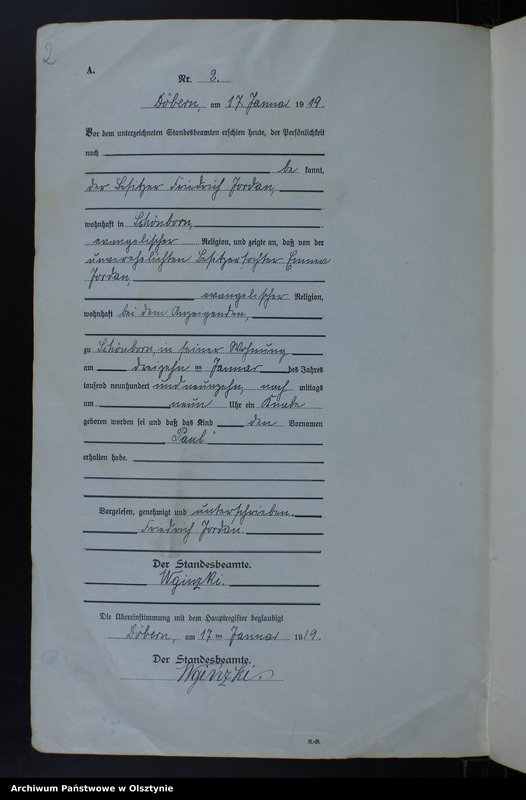 2
A.
Nr. 2.
Döbern, am 17. Januar 1919.
Vor dem unterzeichneten Standesbeamten erschien heute, der Persönlichkeit
nach
be kannt,
der Besitzer Friedrich Jordan,
wohnhaft in Schönborn,
evangelischer Religion, und zeigte an, daß von der
unverehelichten Besitzertochter Emma
Jordan,
evangelischer Religion,
wohnhaft bei dem Anzeigenden,
zu Schönborn, in seiner Wohnung
am dreizehn ten Januar des Jahres
tausend neunhundert und neunzehn, nach mittags
um neun Uhr ein Knabe
geboren worden sei und daß das Kind den Vornamen
Paul
erhalten habe.
Vorgelesen, genehmigt und unterschrieben.
Friedrich Jordan.
Der Standesbeamte.
Wginzki.
Die Übereinstimmung mit dem Hauptregister beglaubigt
Döbern, am 17 ten Januar 1919.
Der Standesbeamte.
Wginzki.
Archiwum Państwowe w Olsztynie